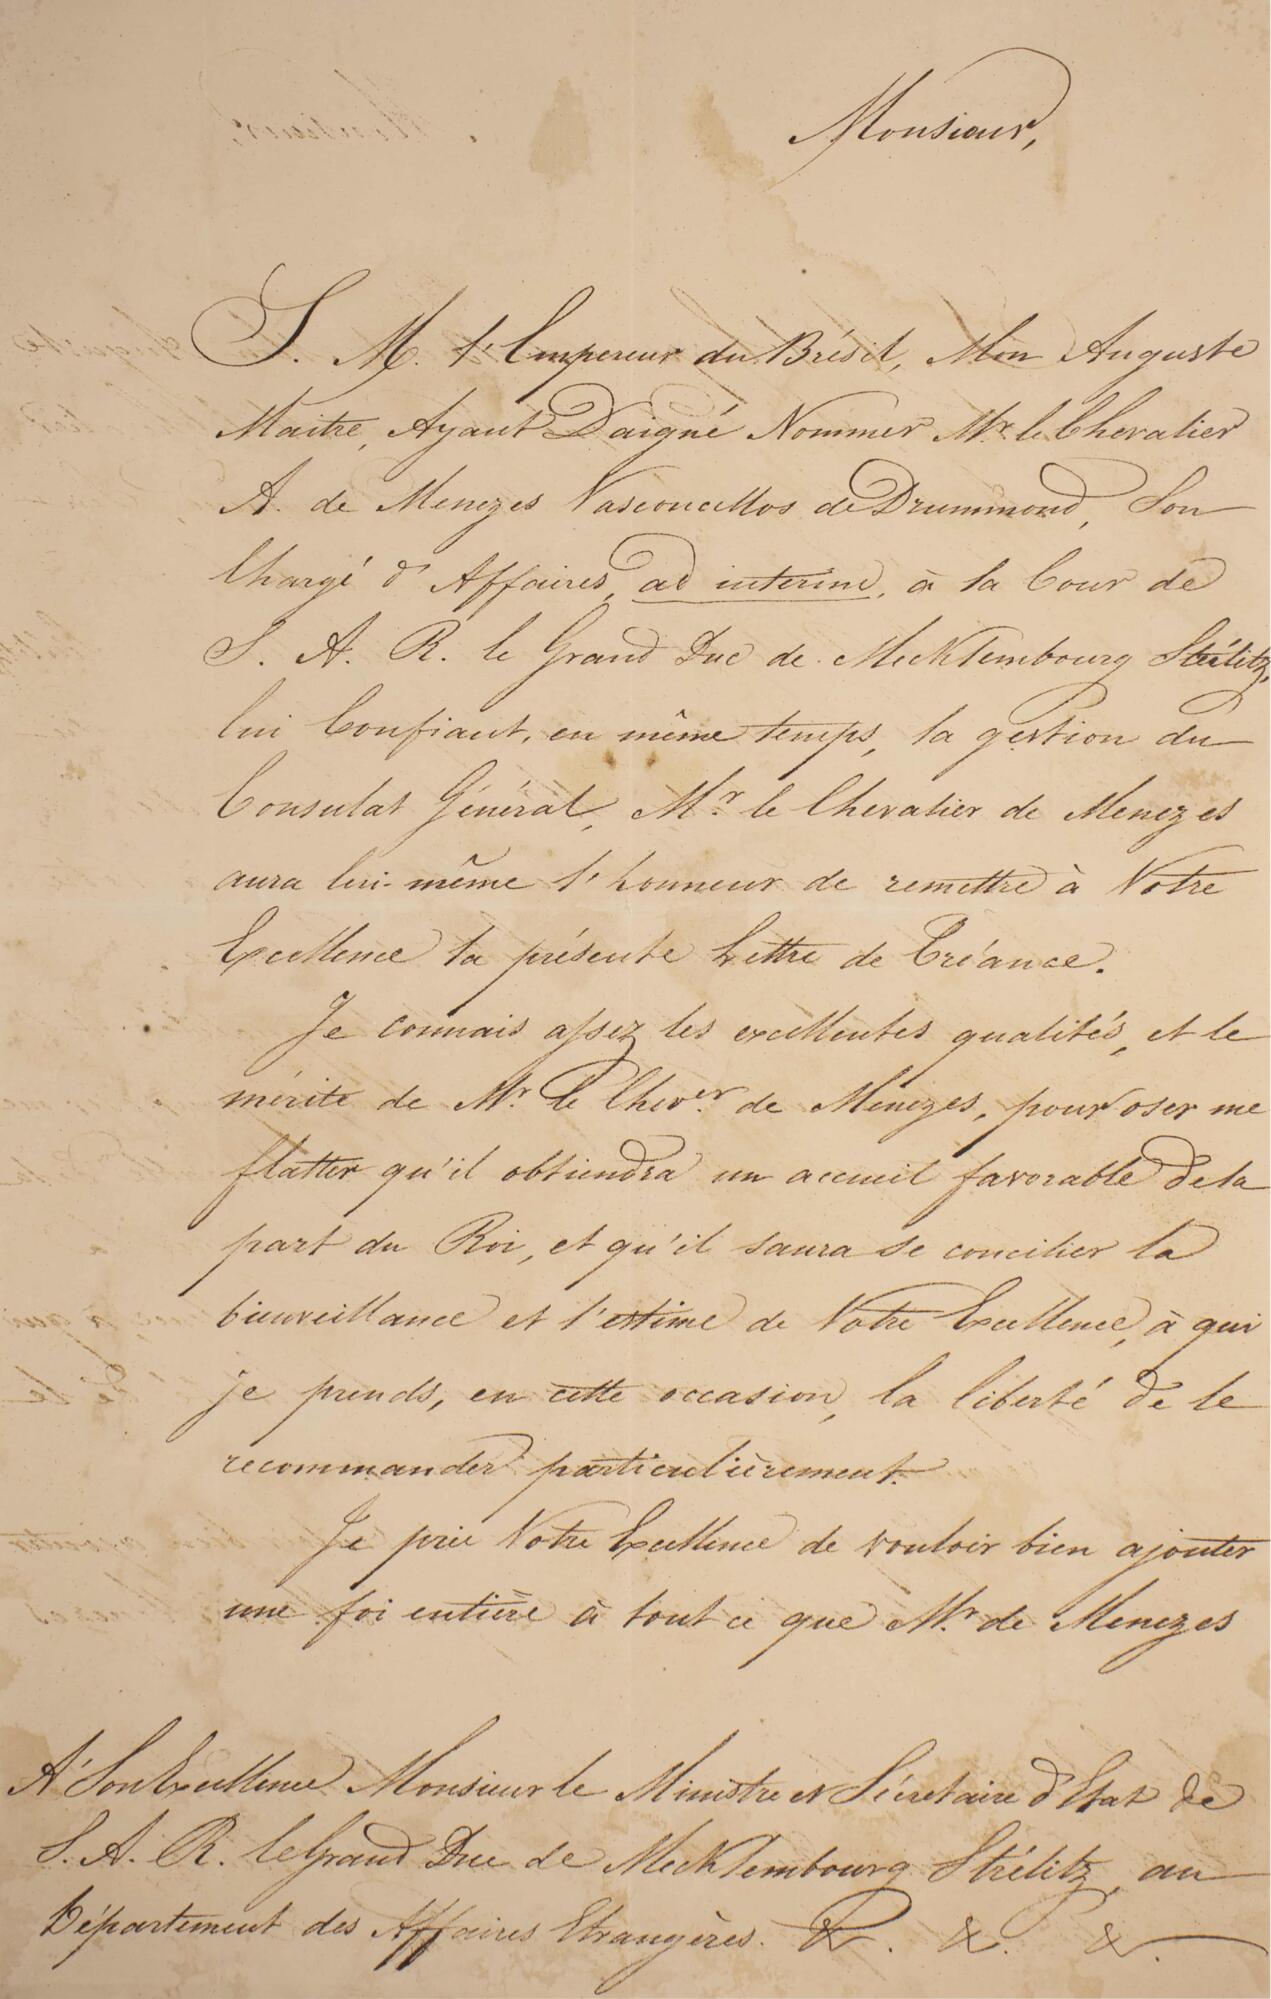 Monsieur,
S. M. l'Empereur du Brésil, Mon Auguste
Maitre, Ayant Daigné Nommer Mr. le Chevalier
A. de Menezes Vasconcellos de Drummond, Son
Chargé d'Affaires, ad interim, à la Cour de
S. A. R. le Grand Duc de Mecklembourg Strélitz,
lui Confiant, en même temps, la gestion du
Consulat Général, Mr. le Chevalier de Menezes
aura lui-même l'honneur de remettre à Votre
Excellence la présente Lettre de Créance.
Je connais assez les excellentes qualités, et le
mérite de Mr. le Chever. de Menezes, pour oser me
flatter qu'il obtiendra un accueil favorable de la
part du Roi, et qu'il saura se concilier la
bienveillance et l'estime de Votre Excellence, à qui
je prends, en cette occasion, la liberté de le
recommander particulièrement.
Je prie Votre Excellence de vouloir bien ajouter
une foi entière à tout ce que Mr. de Menezes
A Son Excellence Monsieur le Ministre et Sécretaire d'Etat de
S. A. R. le Grand Duc de Mecklembourg Strélitz, au
Département des Affaires Etrangères. &. &. &.